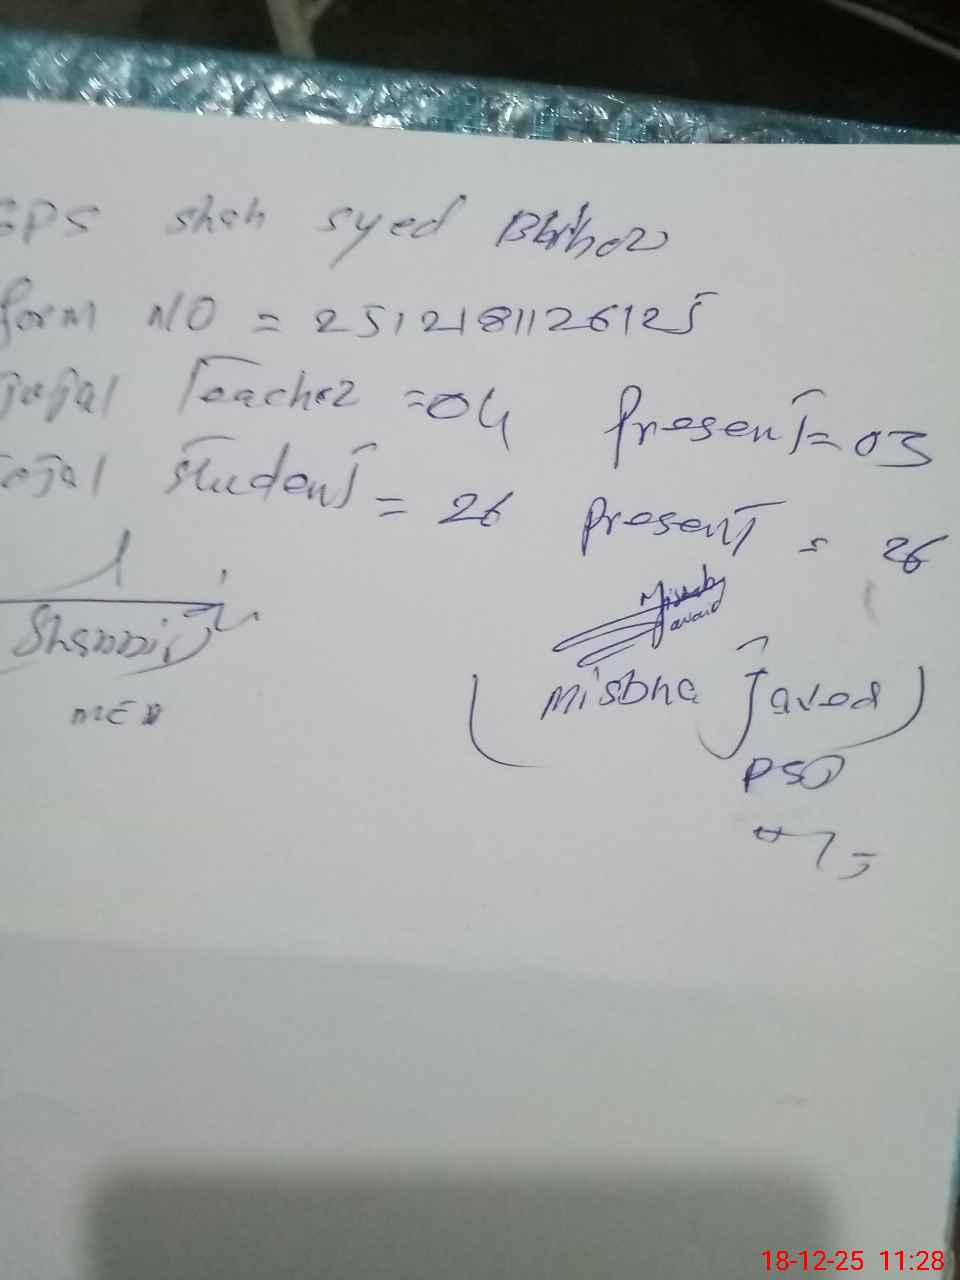 GPS shah syed
form NO = 2512181126125
Total Teacher = 04 Present = 03
Total Student = 26 Present = 26
Misbah
Javaid
(Misbha Javed)
PSO
18-12-25 11:28